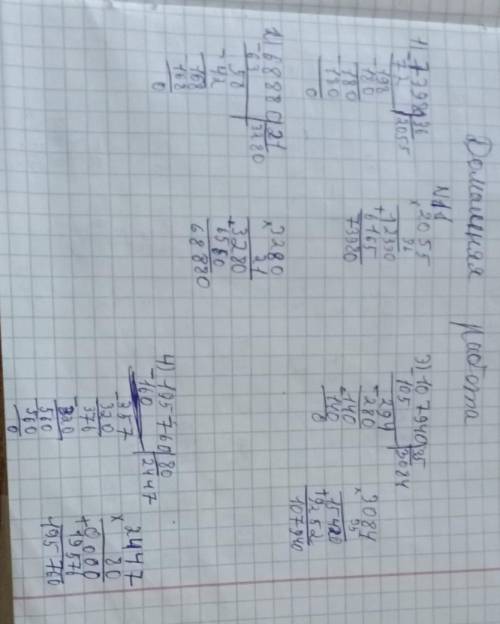 Домашняя работа
№11
1) 73980 | 36
72 | 2055
198
180
180
180
0
× 2055
36
+ 12330
6165
73980
2) 68880 | 21
63 | 3280
58
42
168
168
0
× 3280
21
+ 3280
6560
68880
3) 107940 | 35
105 | 3084
294
280
140
140
0
× 3084
35
+ 15420
9252
107940
4) 195760 | 80
160 | 2447
357
320
376
320
560
560
0
× 2447
80
+ 0000
19576
195760